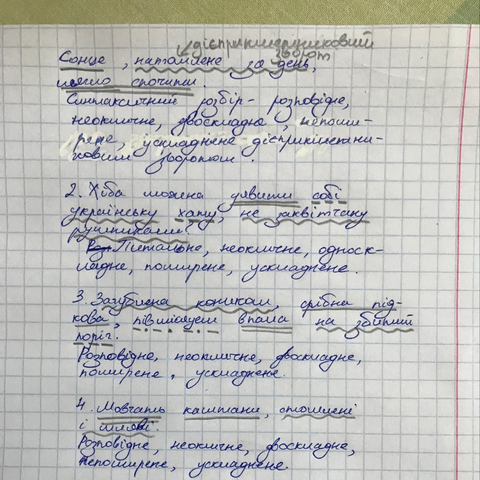 дієприкметниковий
зворот
Сонце, натомлене за день,
лягло спочити.
Синтаксичний розбір - розповідне,
неокличне, двоскладне, непоши-
рене, ускладнене дієприкметни-
ковим зворотом.
2. Хіба можна уявити собі
українську хату, не заквітчану
рушниками?
Питальне, неокличне, односк-
ладне, поширене, ускладнене.
3. Загублена конем, срібна під-
кова, півмісяцем впала на збитий
поріг.
Розповідне, неокличне, двоскладне,
поширене, ускладнене.
4. Мовчать каштани, стомлені
і
Розповідне, неокличне, двоскладне,
непоширене, ускладнене.